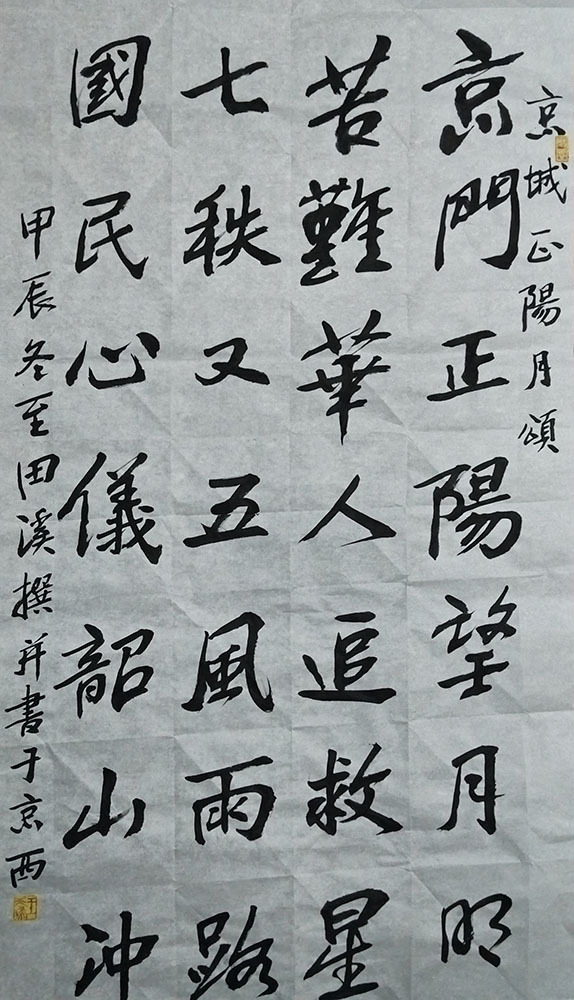 京城正陽月頌
京門正陽望月明
苦難華人追救星
七秩又五風雨路
國民心儀韶山沖
甲辰冬至田溪撰并書于京西